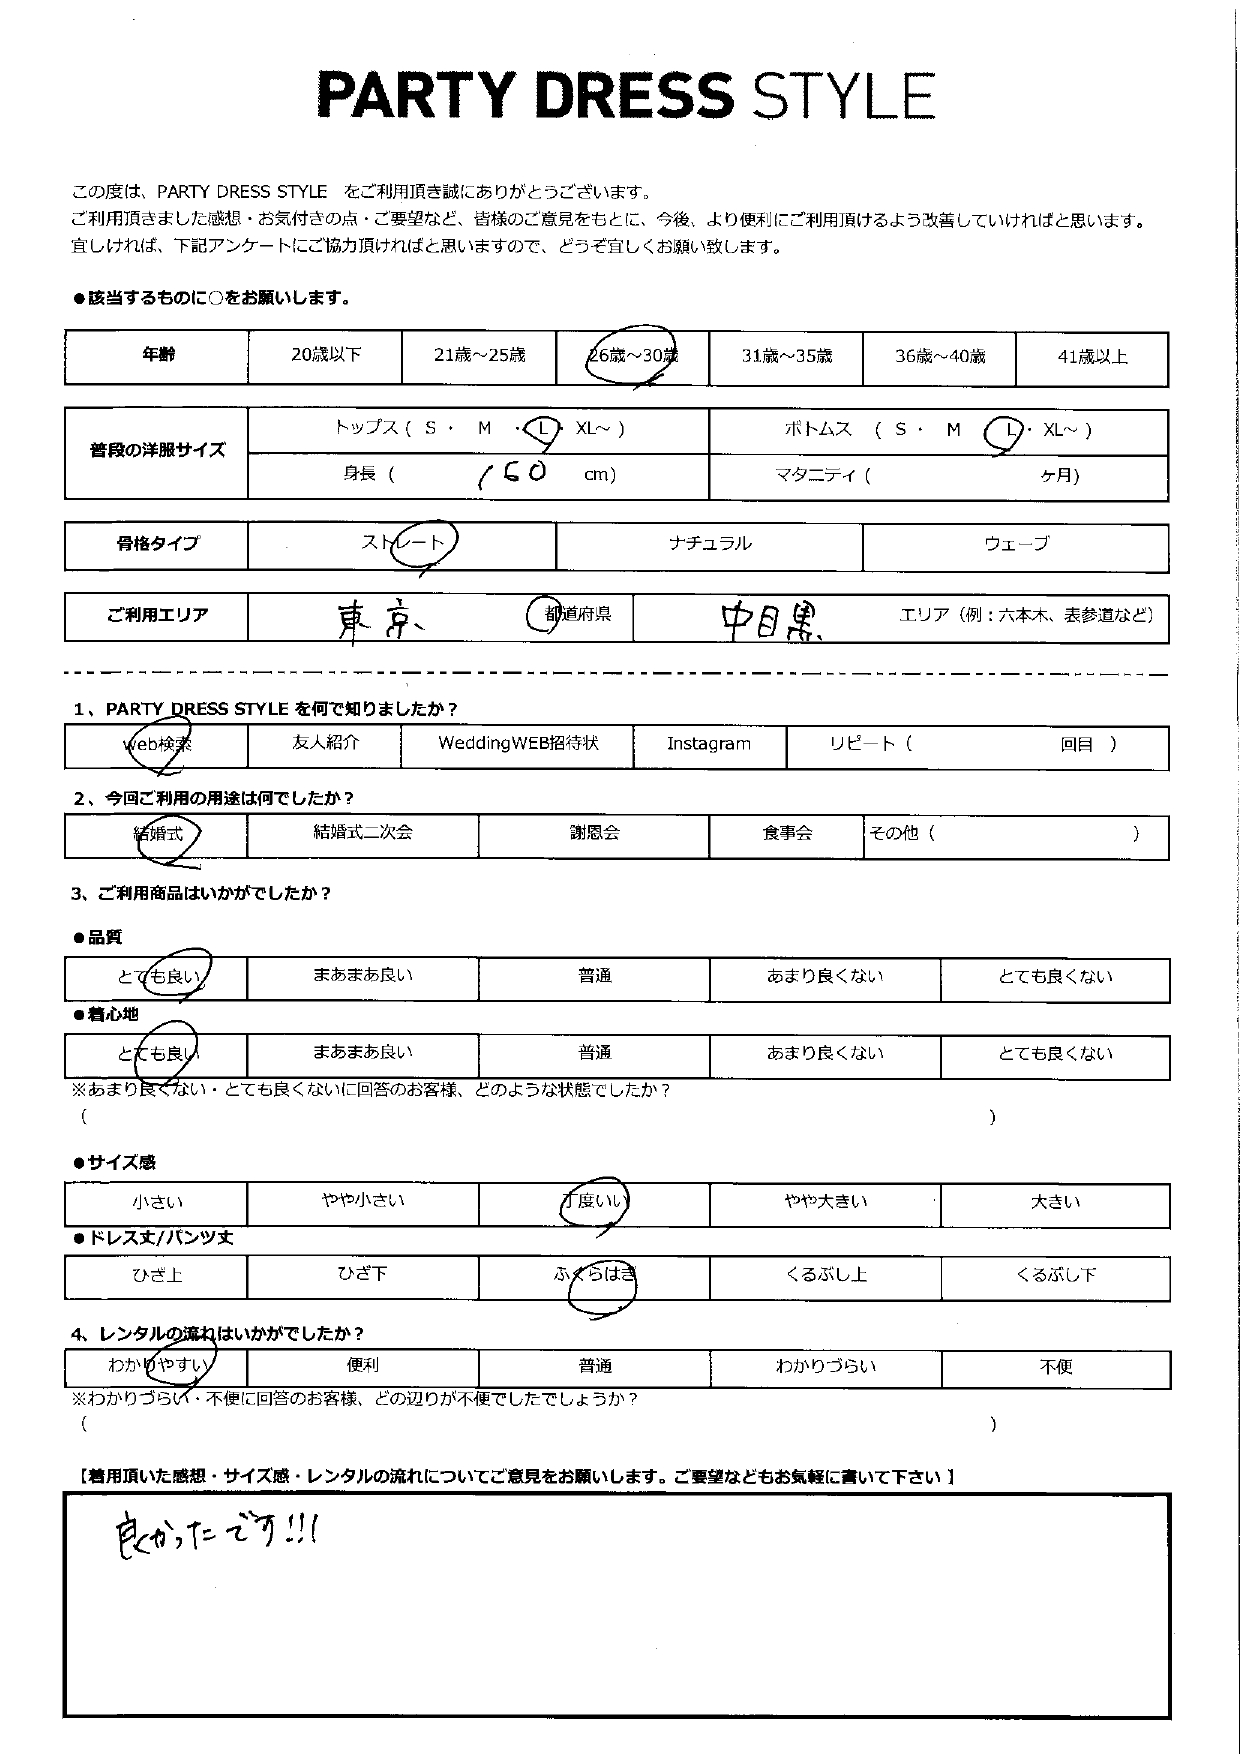 PARTY DRESS STYLE
この度は、PARTY DRESS STYLE をご利用頂き誠にありがとうございます。
ご利用頂きました感想・お気付きの点・ご要望など、皆様のご意見をもとに、今後、より便利にご利用頂けるよう改善していければと思います。
宜しければ、下記アンケートにご協力頂ければと思いますので、どうぞ宜しくお願い致します。
●該当するものに○をお願いします。
年齢 20歳以下 21歳～25歳 26歳～30歳 31歳～35歳 36歳～40歳 41歳以上
普段の洋服サイズ トップス ( S ・ M ・ L ・ XL～ ) ボトムス ( S ・ M ・ L ・ XL～ )
身長 ( 160 cm) マタニティ ( ヶ月)
骨格タイプ ストレート ナチュラル ウェーブ
ご利用エリア 東京 都道府県 中目黒 エリア（例：六本木、表参道など）
1、PARTY DRESS STYLE を何で知りましたか？
web検索 友人紹介 WeddingWEB招待状 Instagram リピート ( 回目 )
2、今回ご利用の用途は何でしたか？
結婚式 結婚式二次会 謝恩会 食事会 その他 ( )
3、ご利用商品はいかがでしたか？
●品質
とても良い まあまあ良い 普通 あまり良くない とても良くない
●着心地
とても良い まあまあ良い 普通 あまり良くない とても良くない
※あまり良くない・とても良くないに回答のお客様、どのような状態でしたか？
( )
●サイズ感
小さい やや小さい 丁度いい やや大きい 大きい
●ドレス丈/パンツ丈
ひざ上 ひざ下 ふくらはぎ くるぶし上 くるぶし下
4、レンタルの流れはいかがでしたか？
わかりやすい 便利 普通 わかりづらい 不便
※わかりづらい・不便に回答のお客様、どの辺りが不便でしたでしょうか？
( )
【着用頂いた感想・サイズ感・レンタルの流れについてご意見をお願いします。ご要望などもお気軽に書いて下さい】
良かったです!!!